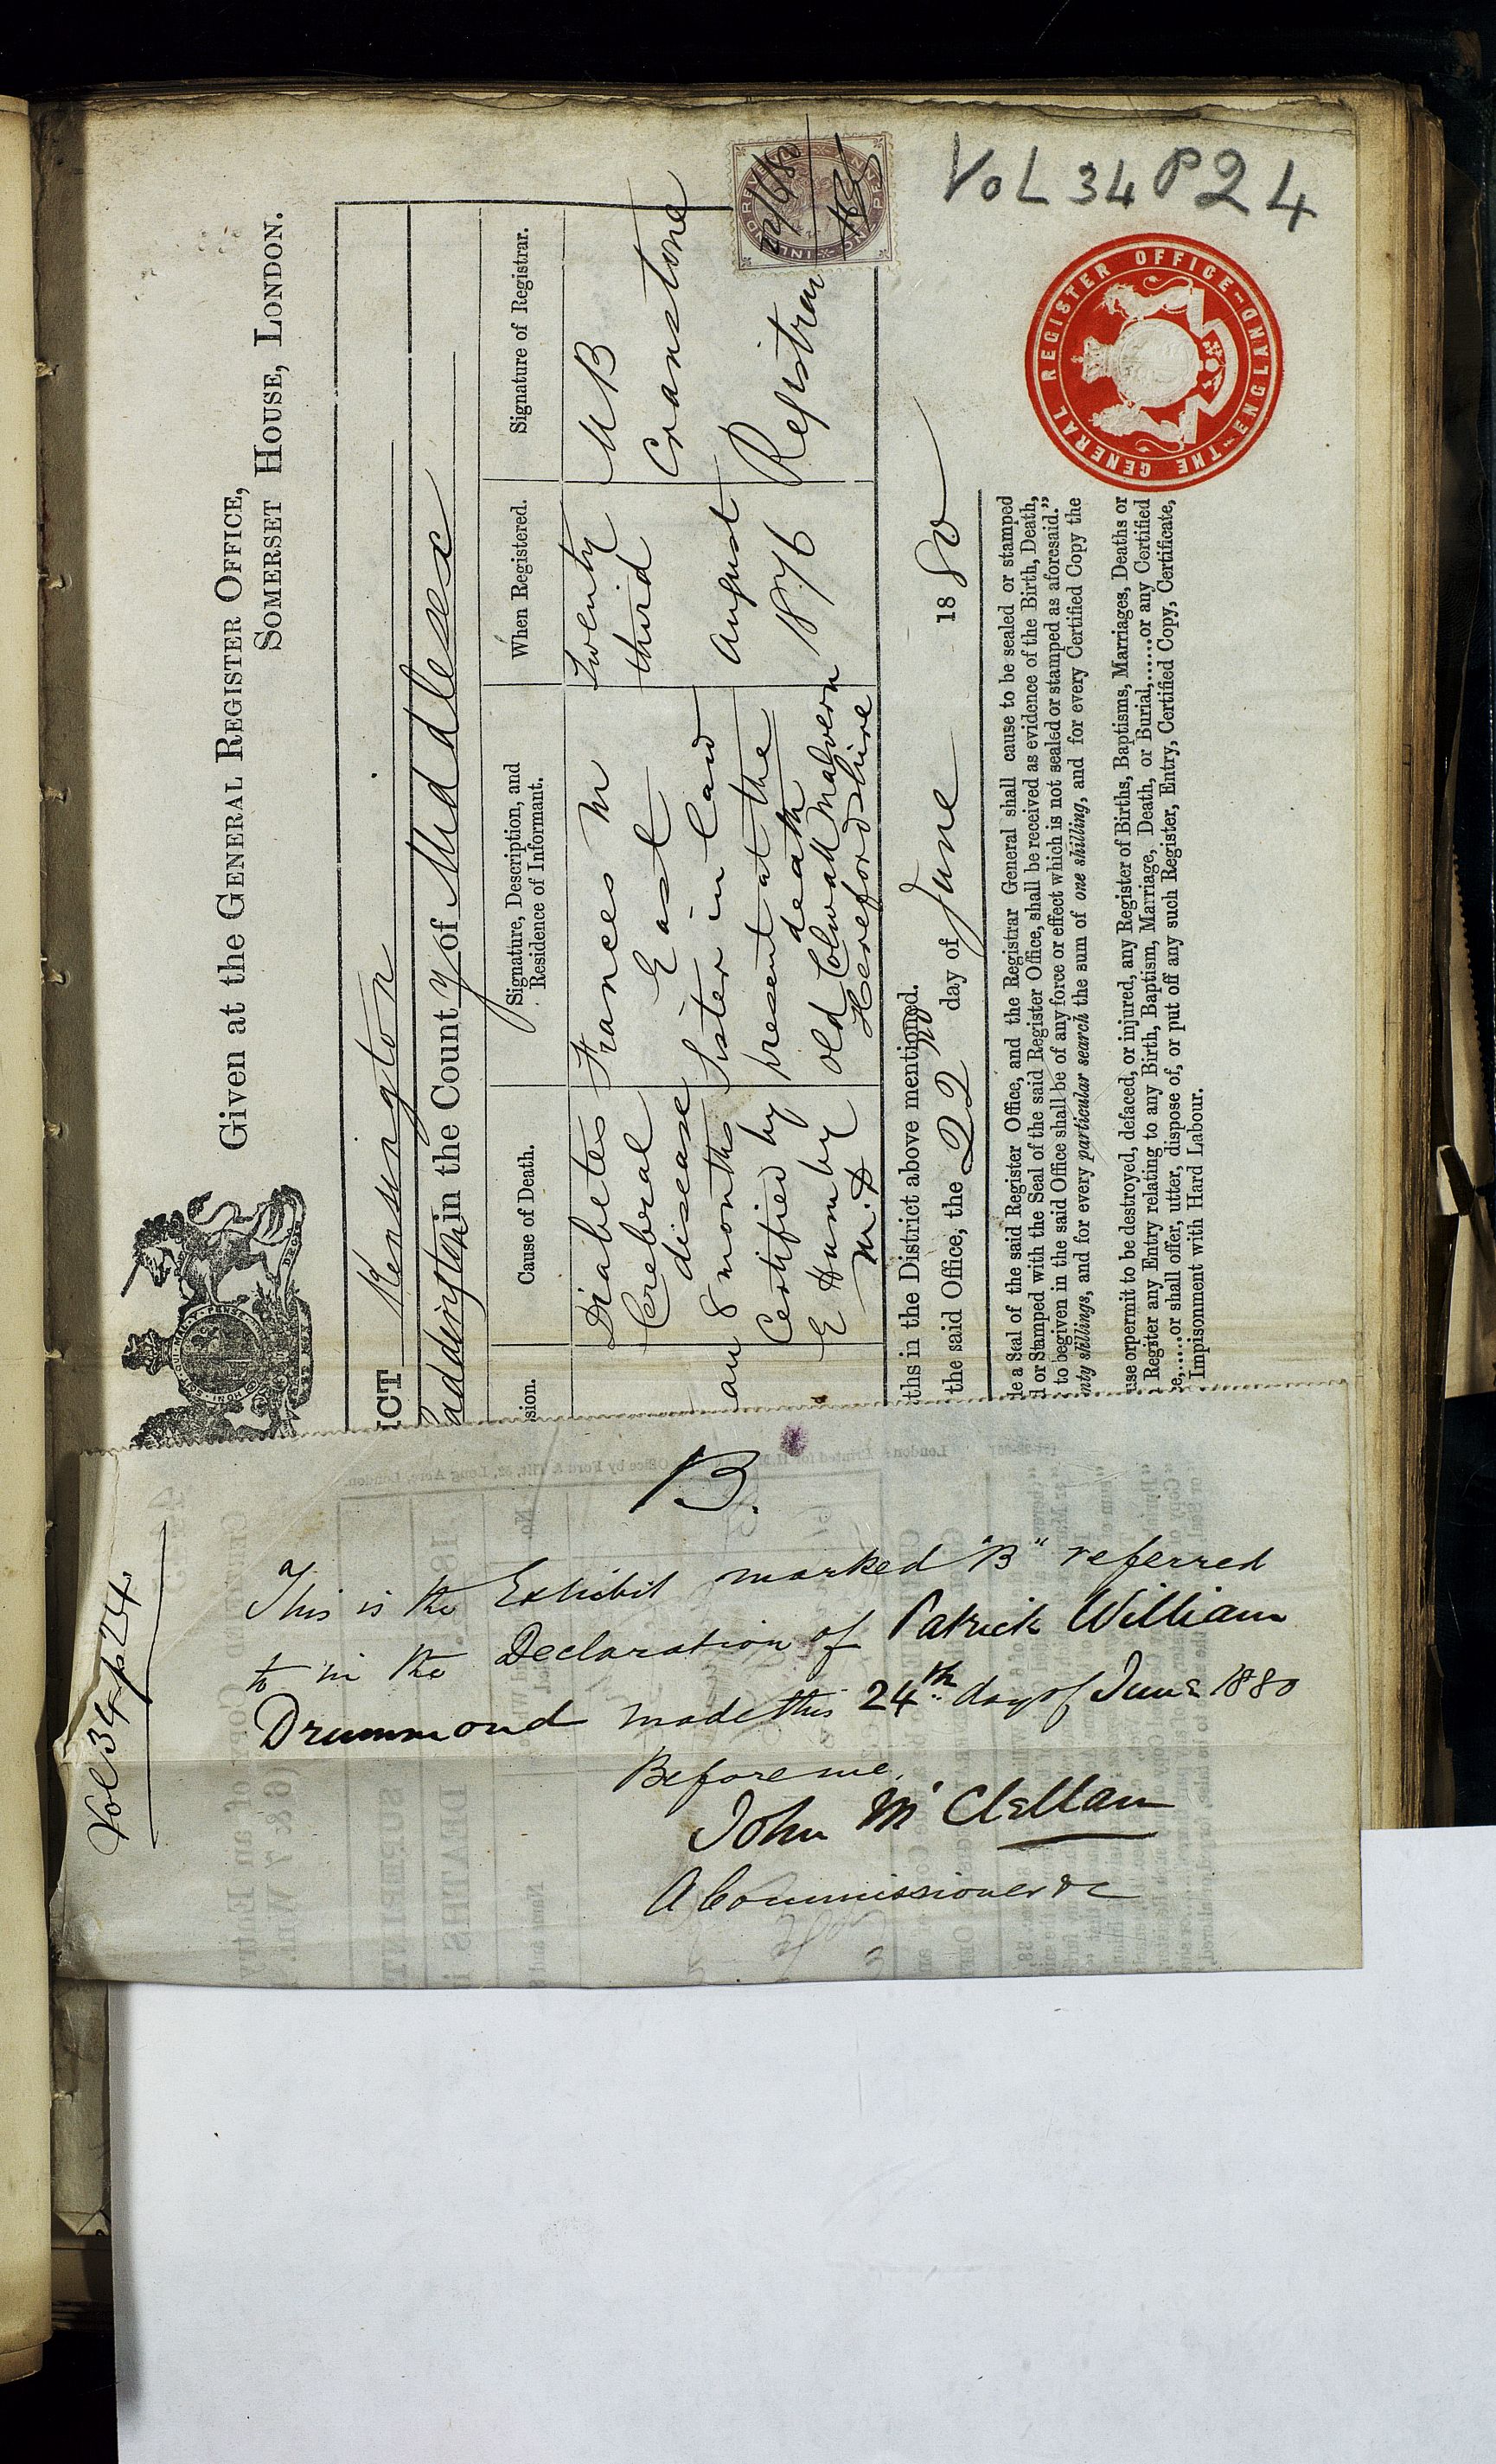 Given at the GENERAL REGISTER OFFICE,
SOMERSET HOUSE, LONDON.
ICT Kensington
addington in the County of Middlesex
sion.
Cause of Death.
Signature, Description, and
Residence of Informant.
When Registered.
Signature of Registrar.
an
Diabetes
Cerebral
disease
8 months
Certified by
E Humby
M.D
Frances M
East
Sister in law
present at the
death
Old Colwall Malvern
Herefordshire
Twenty
third
August
1876
M B
Cranstone
Registrar
22/6/80
ths in the District above mentioned.
the said Office, the 22nd day of June 1880
de a Seal of the said Register Office, and the Registrar General shall cause to be sealed or stamped
d or Stamped with the Seal of the said Register Office, shall be received as evidence of the Birth, Death,
to begiven in the said Office shall be of any force or effect which is not sealed or stamped as aforesaid."
nty shillings, and for every particular search the sum of one shilling, and for every Certified Copy the
use or permit to be destroyed, defaced, or injured, any Register of Births, Baptisms, Marriages, Deaths or
Regiter any Entry relating to any Birth, Baptism, Marriage, Death, or Burial,......or any Certified
e,......or shall offer, utter, dispose of, or put off any such Register, Entry, Certified Copy, Certificate,
Impisonment with Hard Labour.
THE GENERAL REGISTER OFFICE-ENGLAND
VOL 34 P24
Vol 34 p 24
B.
This is the Exhibit marked "B" referred
to in the Declaration of Patrick William
Drummond made this 24th day of June 1880
Before me,
John McClellan
A Commissioner &c